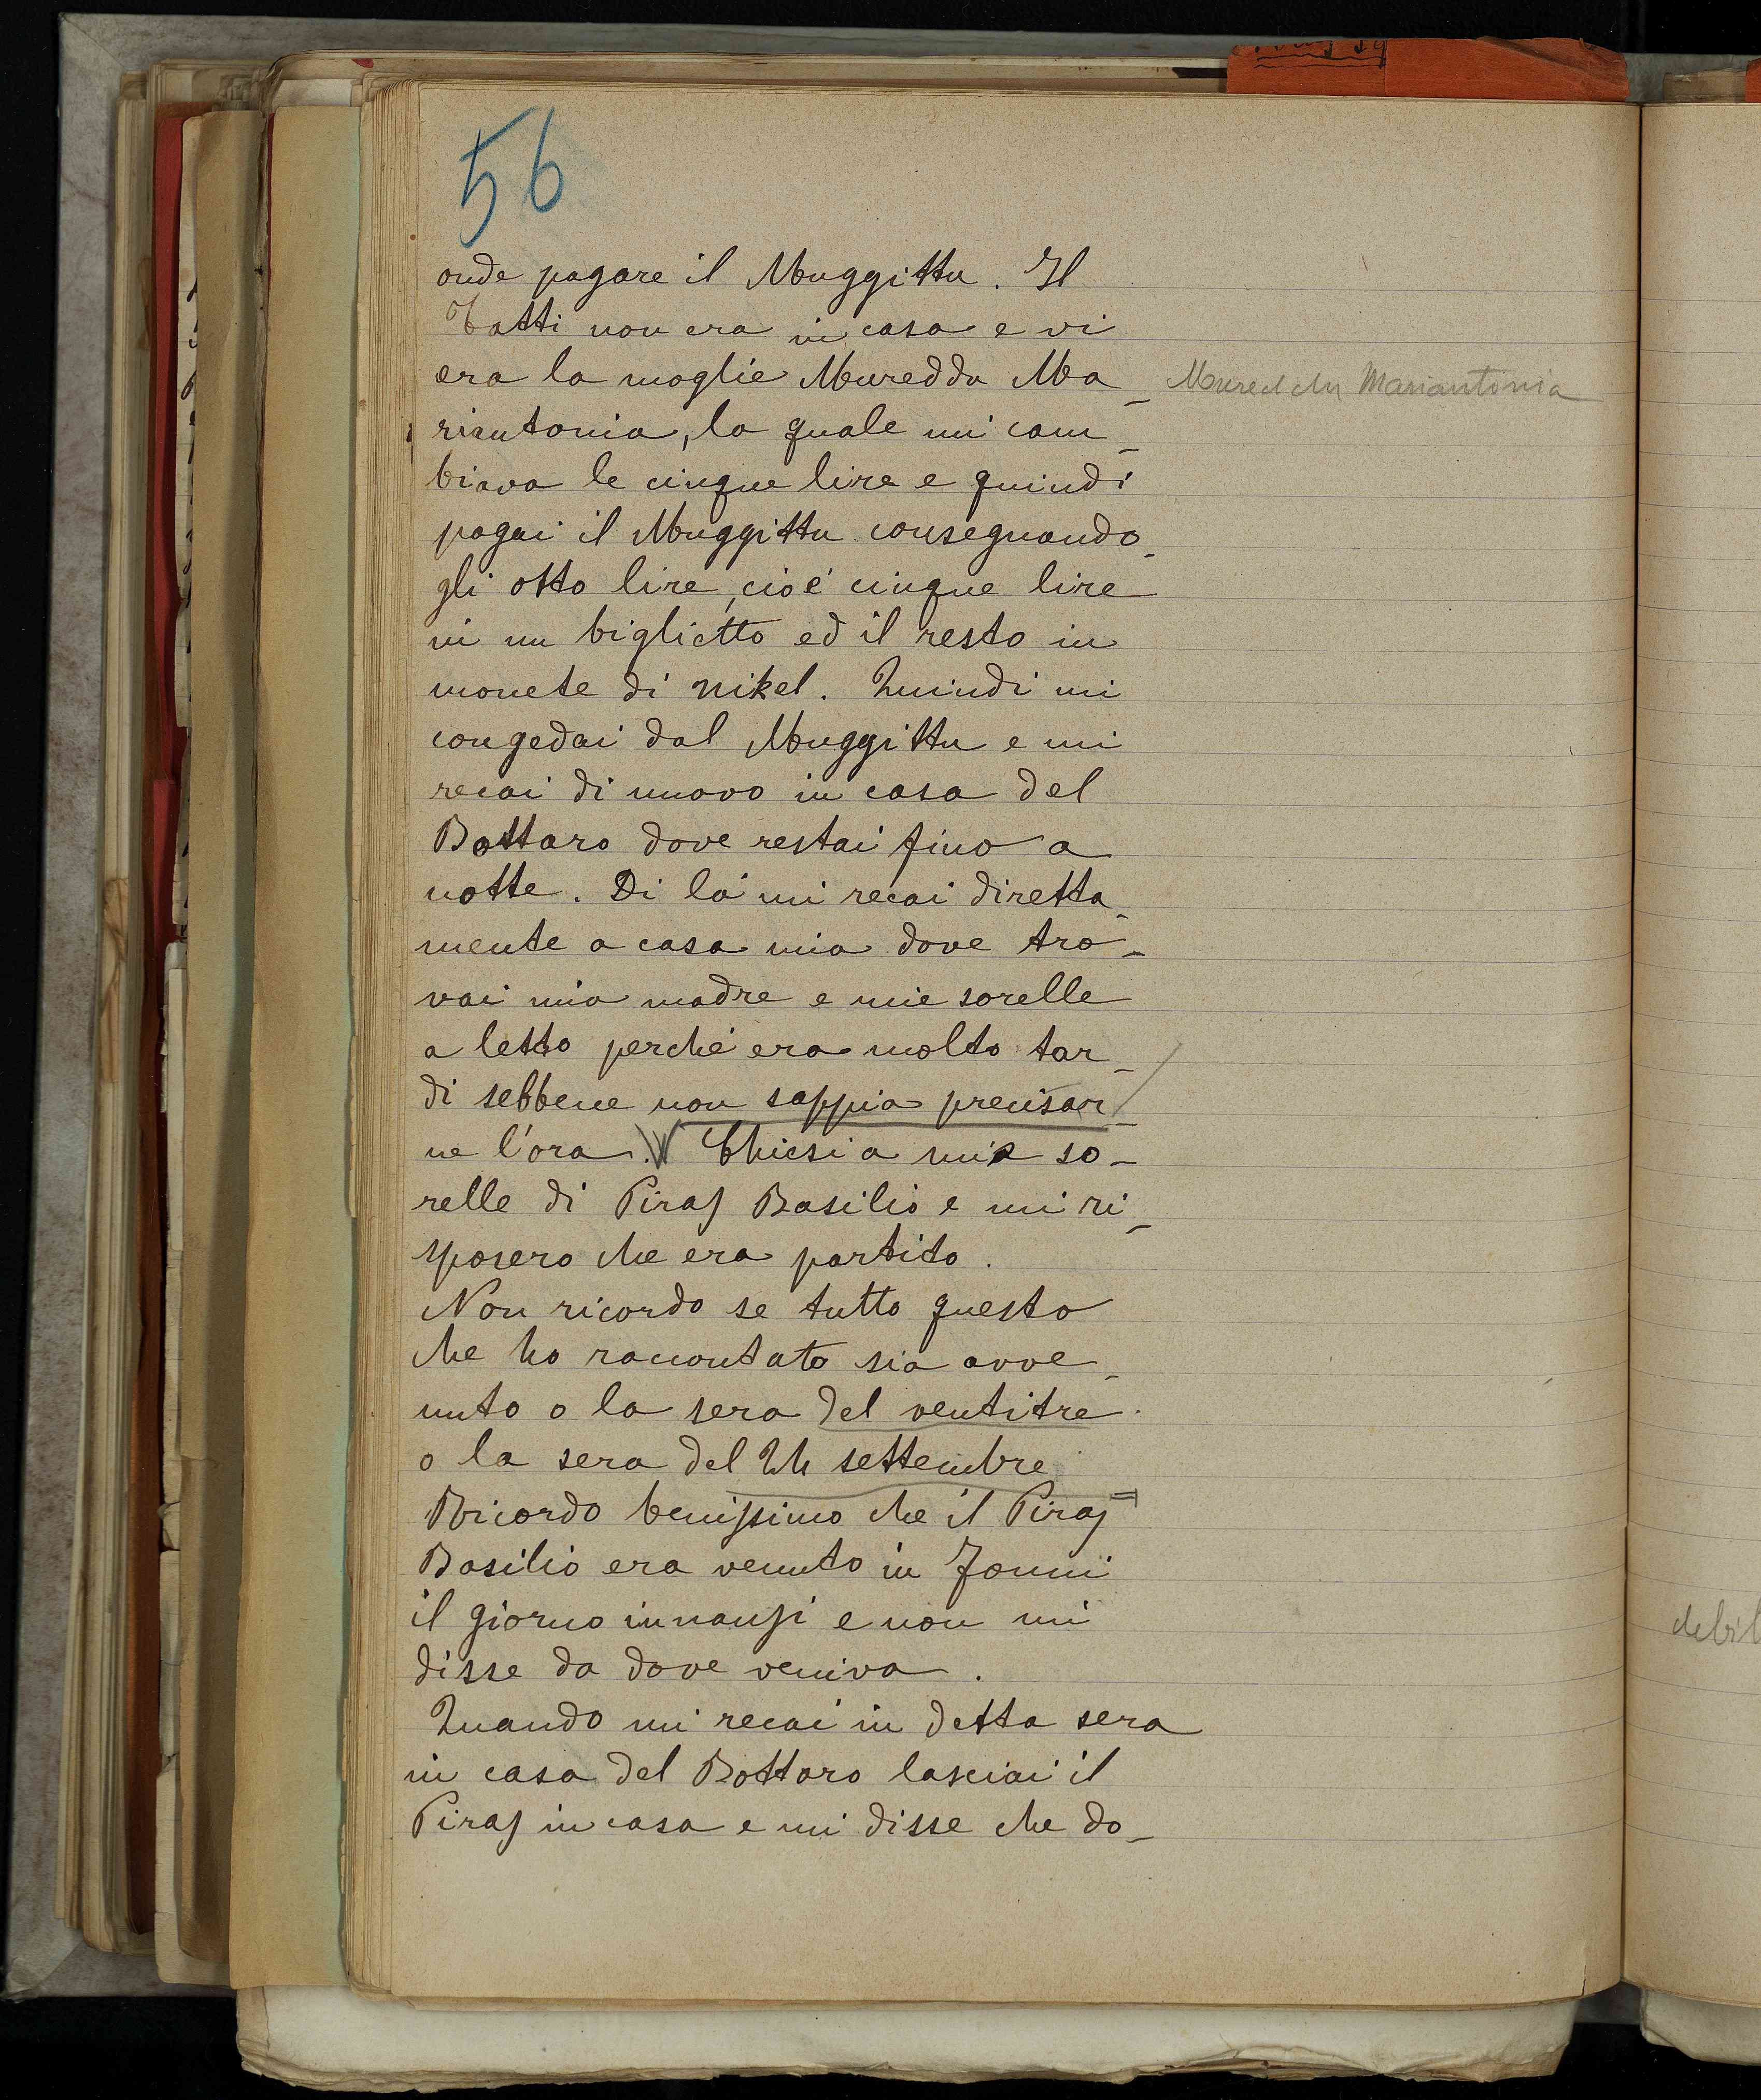 56
onde pagare il Muggittu. Il
Tatti non era in casa e vi
era la moglie Mureddu Ma-
Mureddu Mariantonia
riantonia, la quale mi cam-
biava le cinque lire e quindi
pagai il Muggittu consegnando-
gli otto lire, cioè cinque lire
in un biglietto ed il resto in
monete di nikel. Quindi mi
congedai dal Muggittu e mi
recai di nuovo in casa del
Bottaro dove restai fino a
notte. Di là mi recai diretta-
mente a casa mia dove tro-
vai mia madre e mie sorelle
a letto perchè era molto tar-
di sebbene non sappia precisar-
ne l'ora. Chiesi a mie so-
relle di Piras Basilio e mi ri-
sposero che era partito.
Non ricordo se tutto questo
che ho raccontato sia avve-
nuto o la sera del ventitre
o la sera del 24 settembre
Ricordo benissimo che il Piras
Basilio era venuto in Fonni
il giorno innanzi e non mi
disse da dove veniva.
Quando mi recai in detta sera
in casa del Bottaro lasciai il
Piras in casa e mi disse che do-